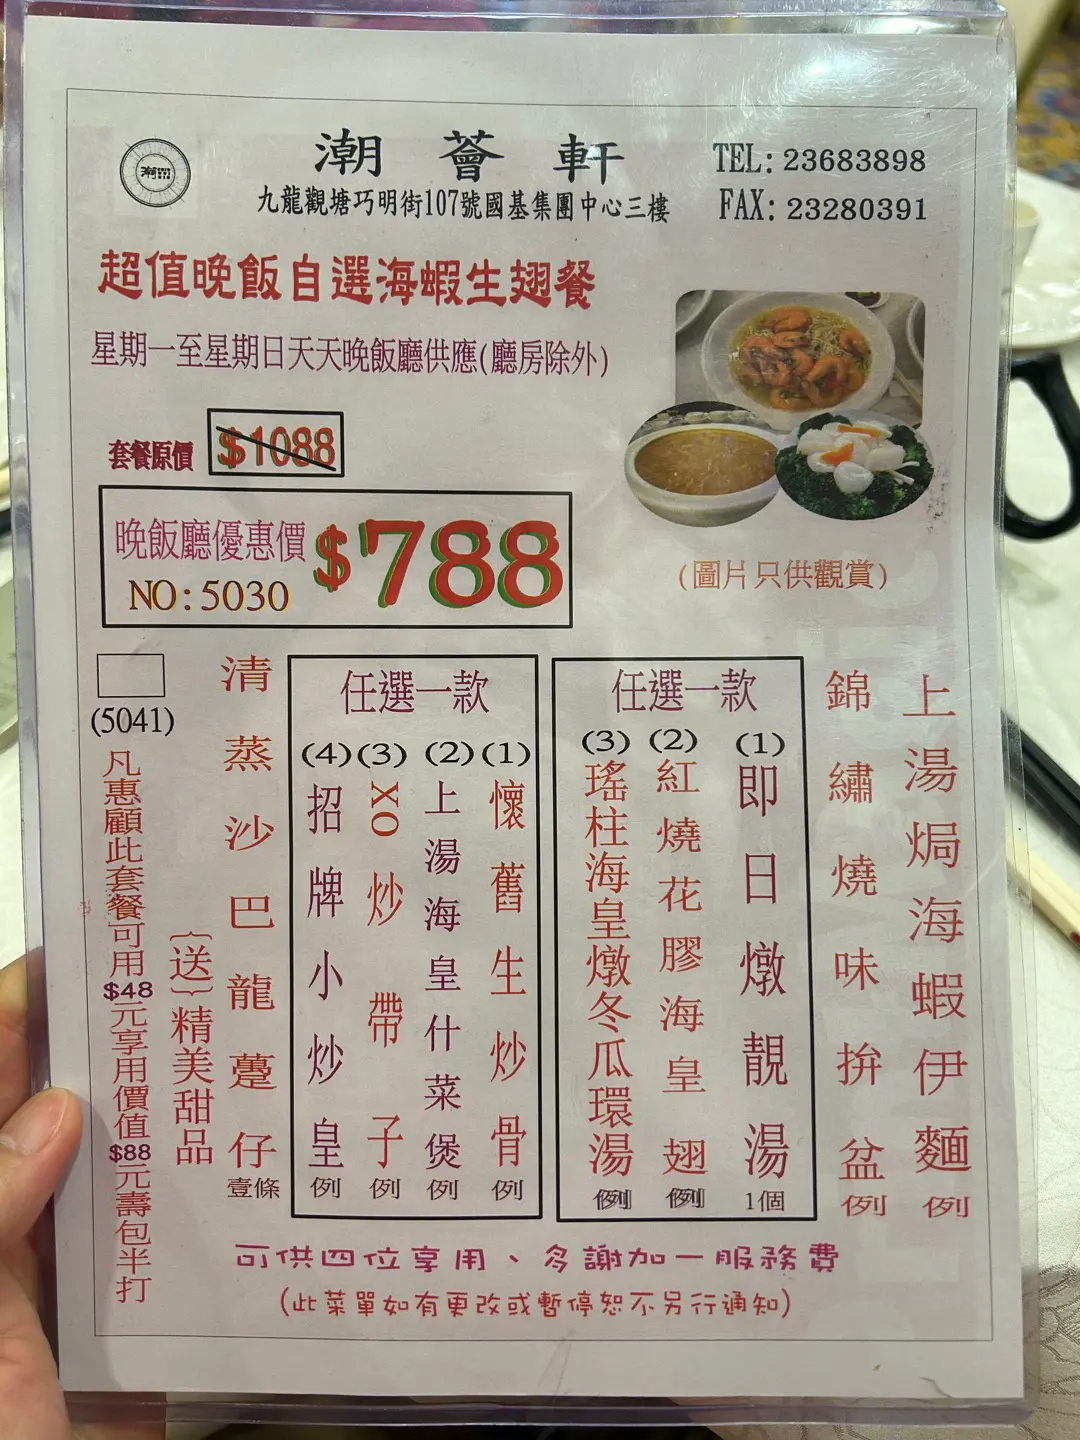 潮薈軒
九龍觀塘巧明街107號國基集團中心三樓
TEL: 23683898
FAX: 23280391
超值晚飯自選海蝦生翅餐
星期一至星期日天天晚飯廳供應(廳房除外)
套餐原價 $1088
晚飯廳優惠價 $788
NO: 5030
(圖片只供觀賞)
上湯焗海蝦伊麵 例
錦繡燒味拼盆 例
任選一款
(1) 即日燉靚湯 1個
(2) 紅燒花膠海皇翅 例
(3) 瑤柱海皇燉冬瓜環湯 例
任選一款
(1) 懷舊生炒骨 例
(2) 上湯海皇什菜煲 例
(3) XO炒帶子 例
(4) 招牌小炒皇 例
清蒸沙巴龍躉仔 壹條
{送}精美甜品
(5041)
凡惠顧此套餐可用$48元享用價值$88元壽包半打
可供四位享用、多謝加一服務費
(此菜單如有更改或暫停恕不另行通知)